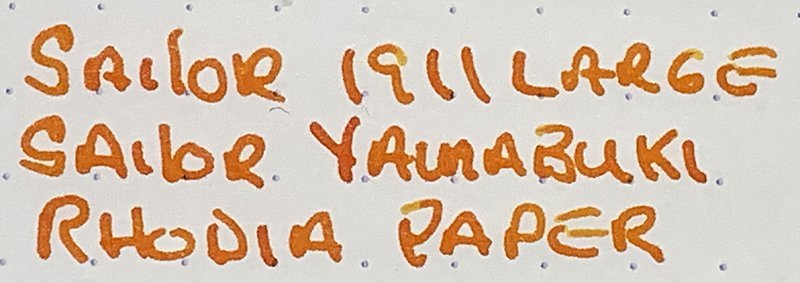 SAilOR 1911 LARGE
SAilOR YAMABUKI
RHODIA PAPER